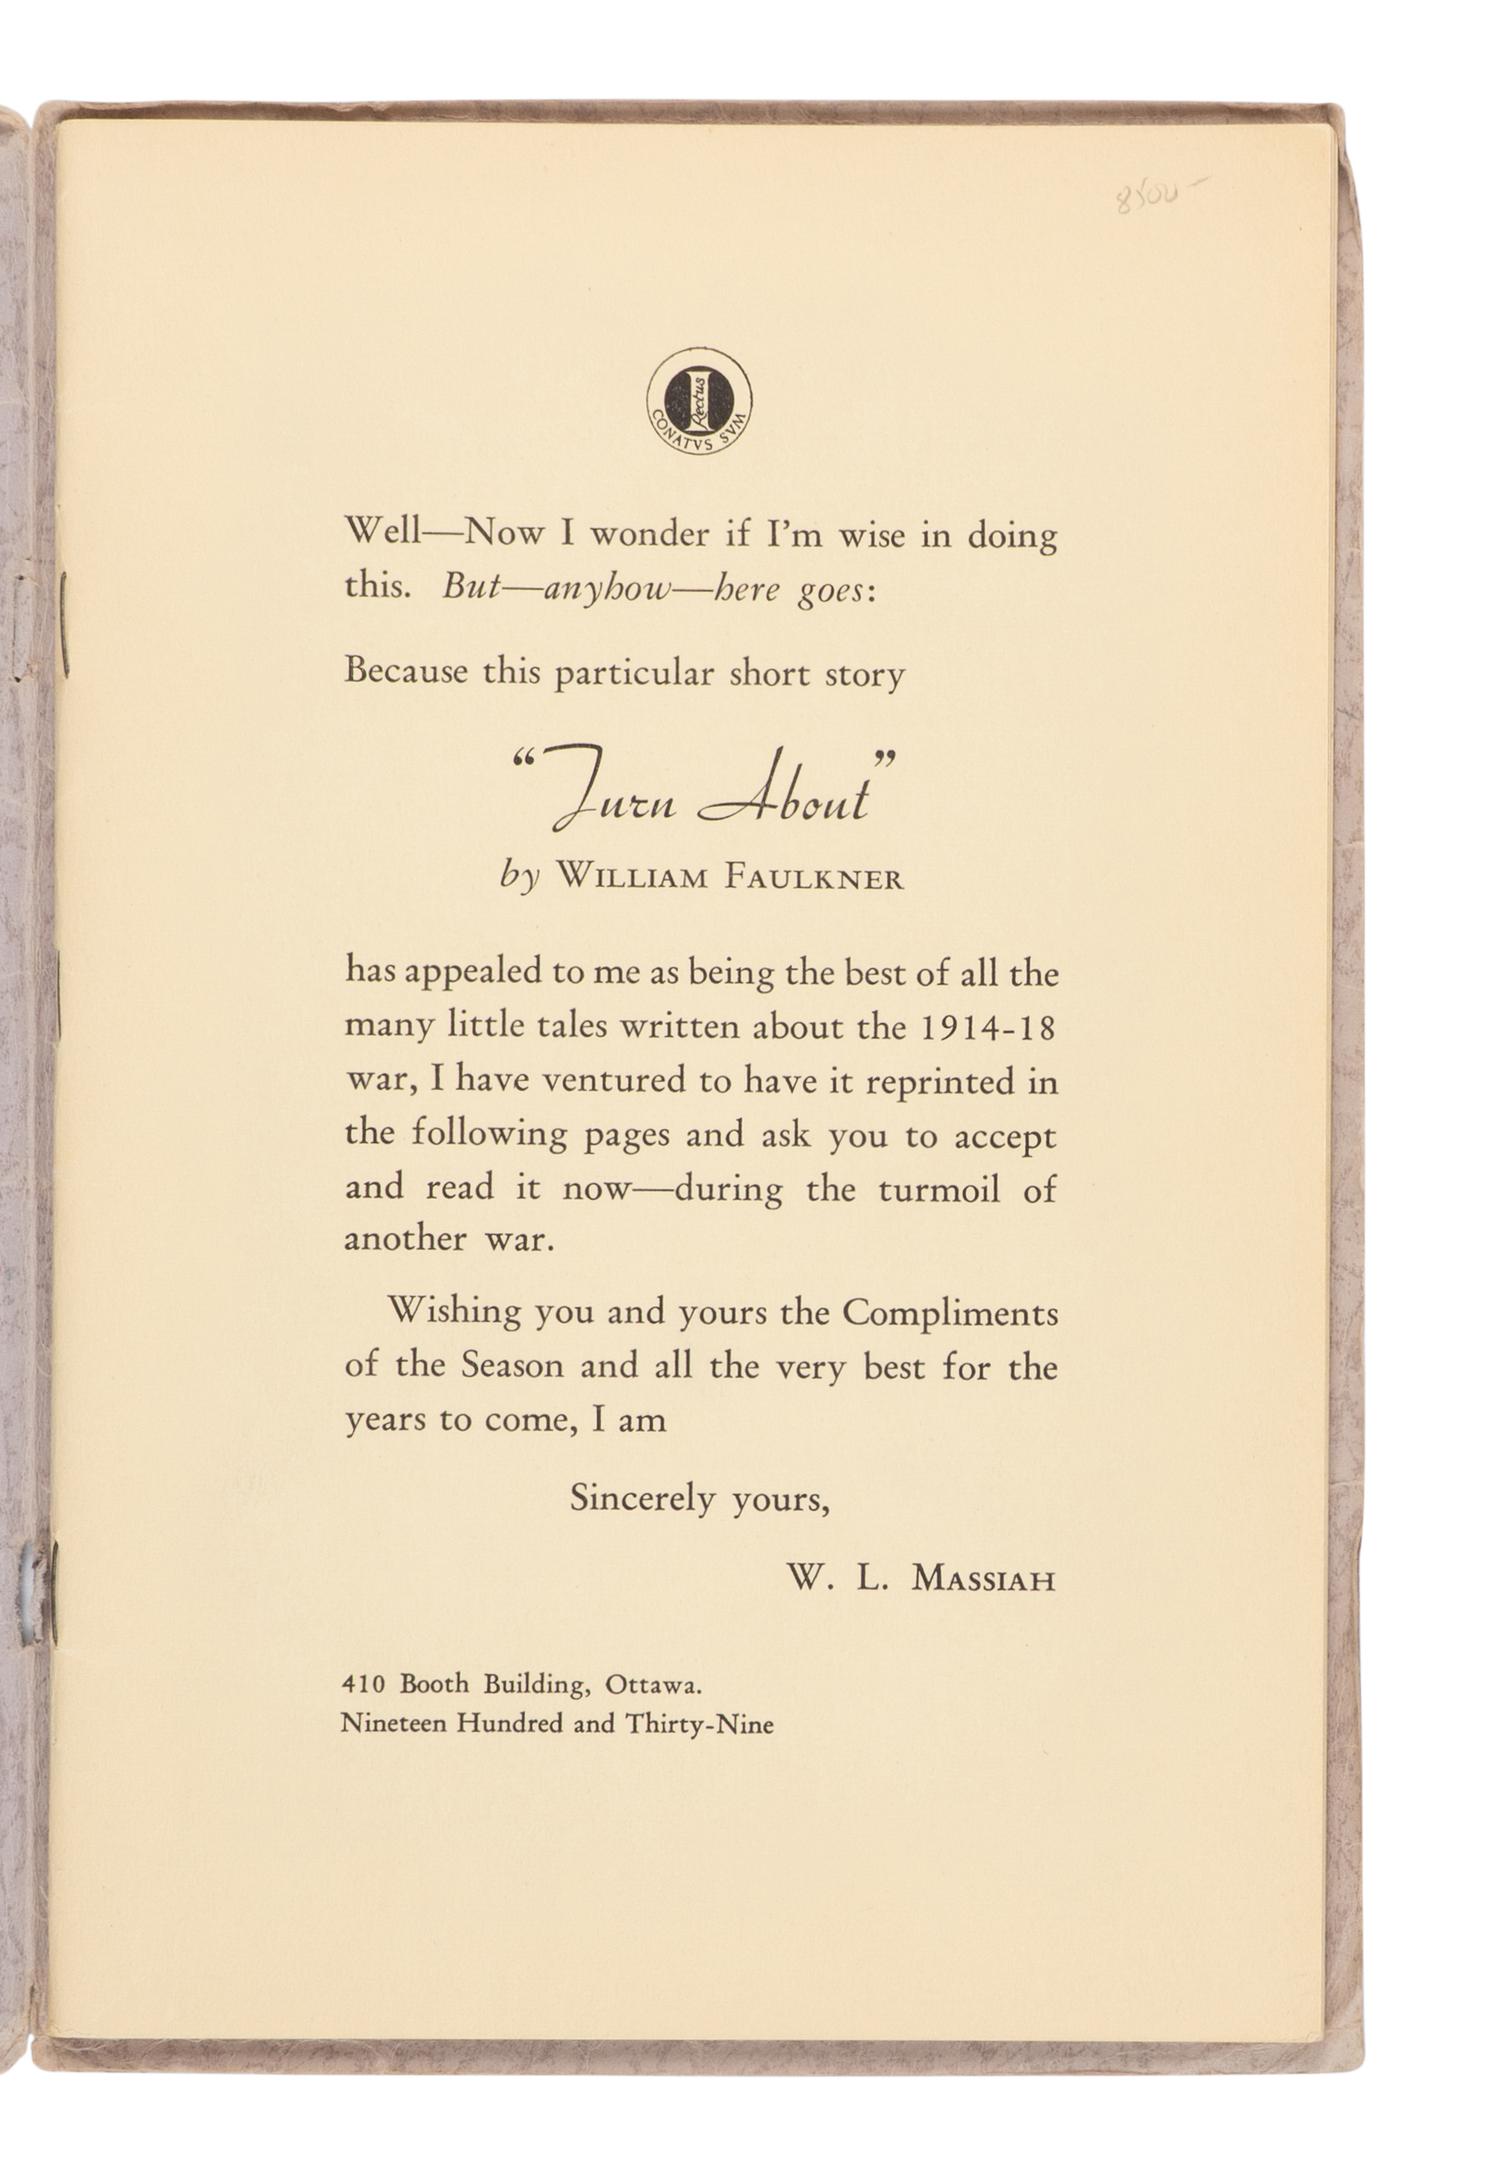 8500-
I
Rectus
CONATVS SVM
Well—Now I wonder if I'm wise in doing
this. But—anyhow—here goes:
Because this particular short story
“Turn About”
by WILLIAM FAULKNER
has appealed to me as being the best of all the
many little tales written about the 1914-18
war, I have ventured to have it reprinted in
the following pages and ask you to accept
and read it now—during the turmoil of
another war.
Wishing you and yours the Compliments
of the Season and all the very best for the
years to come, I am
Sincerely yours,
W. L. MASSIAH
410 Booth Building, Ottawa.
Nineteen Hundred and Thirty-Nine